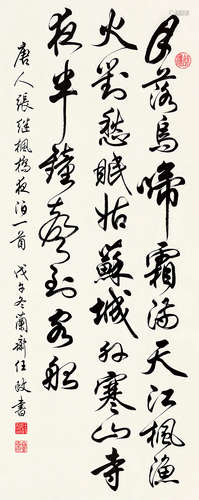 月落烏啼霜滿天江楓漁
火對愁眠姑蘇城外寒山寺
夜半鐘聲到客船
唐人張継楓橋夜泊一首 戊午冬蘭齋任政書